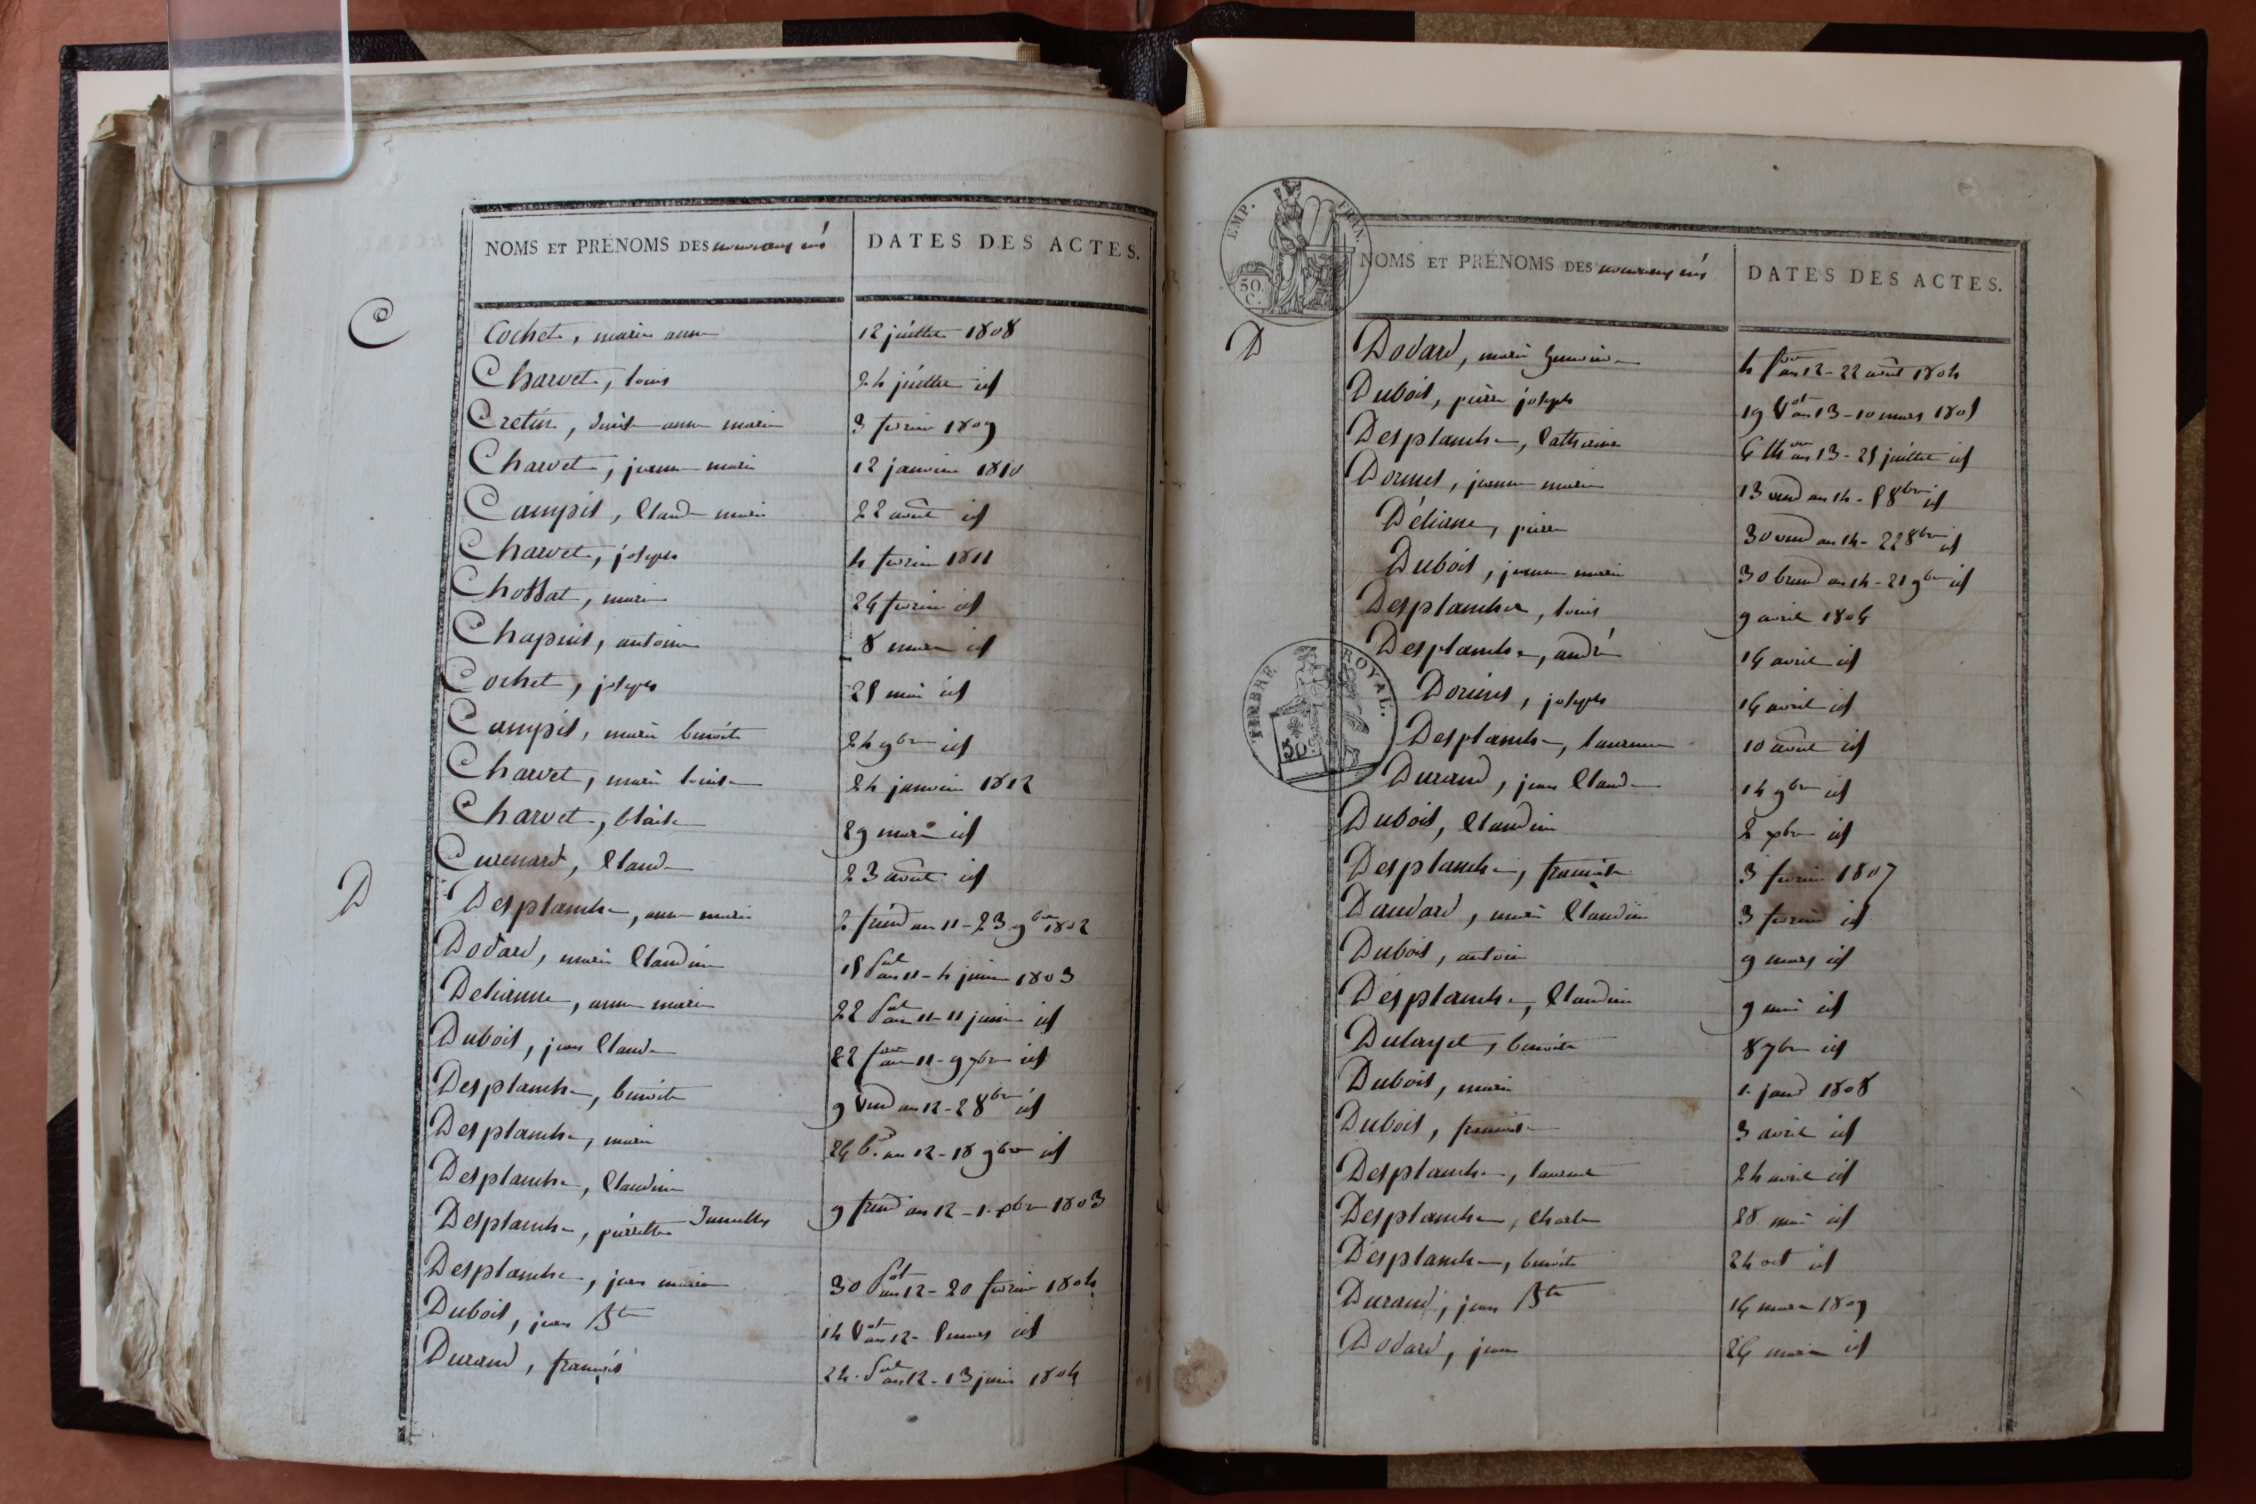 NOMS ET PRÉNOMS DES nouveaux nés
DATES DES ACTES.
C
Cochet, marie anne 12 juillet 1808
Charvet, louis 24 juillet id
Cretin, anne marie 3 fevrier 1809
Charvet, jeanne marie 12 janvier 1810
Campis, Claude marie 22 août id
Charvet, joseph 4 fevrier 1811
Chossat, marie 26 fevrier id
Chapuis, antoine 8 mars id
Cochet, joseph 25 mai id
Campis, marie benoite 24 9bre id
Charvet, marie louise 24 janvier 1812
Charvet, blaise 29 mars id
Curenard, Claude 23 août id
D
Desplanche, anne marie 2 frim an 11 - 23 9bre 1802
Dodard, marie Claudine 15 an 11 - 4 juin 1803
Delianne, anne marie 22 an 11 - 11 juin id
Dubois, jean Claude 22 an 11 - 9 7bre id
Desplanche, benoite 9 vend an 12 - 2 8bre id
Desplanche, marie 26 b. an 12 - 18 9bre id
Desplanche, Claudine
Desplanche, pierrette Jumelles 9 frim an 12 - 1. xbre 1803
Desplanche, jean marie 30 an 12 - 20 fevrier 1804
Dubois, jean Bte 14 an 12 - 5 mars id
Durand, françois 24 an 12 - 13 juin 1804
EMP. FRAN.
50 C.
NOMS ET PRÉNOMS DES nouveaux nés
DATES DES ACTES.
D
Dodard, marie 4 an 12 - 22 août 1804
Dubois, pierre joseph 19 an 13 - 10 mars 1805
Desplanche, Catherine 6 an 13 - 25 juillet id
Dorines, jeanne marie 13 vend an 14 - 5 8bre id
Déliane, pierre 30 vend an 14 - 22 8bre id
Dubois, jeanne marie 30 brum an 14 - 21 9bre id
Desplanche, louis 9 avril 1806
Desplanche, andré 16 avril id
TIMBRE ROYAL.
50
Dorines, joseph 16 avril id
Desplanche, 10 août id
Durand, jean Claude 14 9bre id
Dubois, Claudine 2 xbre id
Desplanche, françoise 3 fevrier 1807
Daudard, marie Claudine 3 fevrier id
Dubois, antoine 9 mars id
Désplanche, Claudine 9 mai id
benoite 8 7bre id
Dubois, marie 1. janv 1808
Dubois, françoise 3 avril id
Desplanche, laurent 24 avril id
Desplanche, Charle 28 mai id
Désplanche, benoite 24 oct id
Durand, jean Bte 16 mars 1809
Dodard, jean 26 mars id